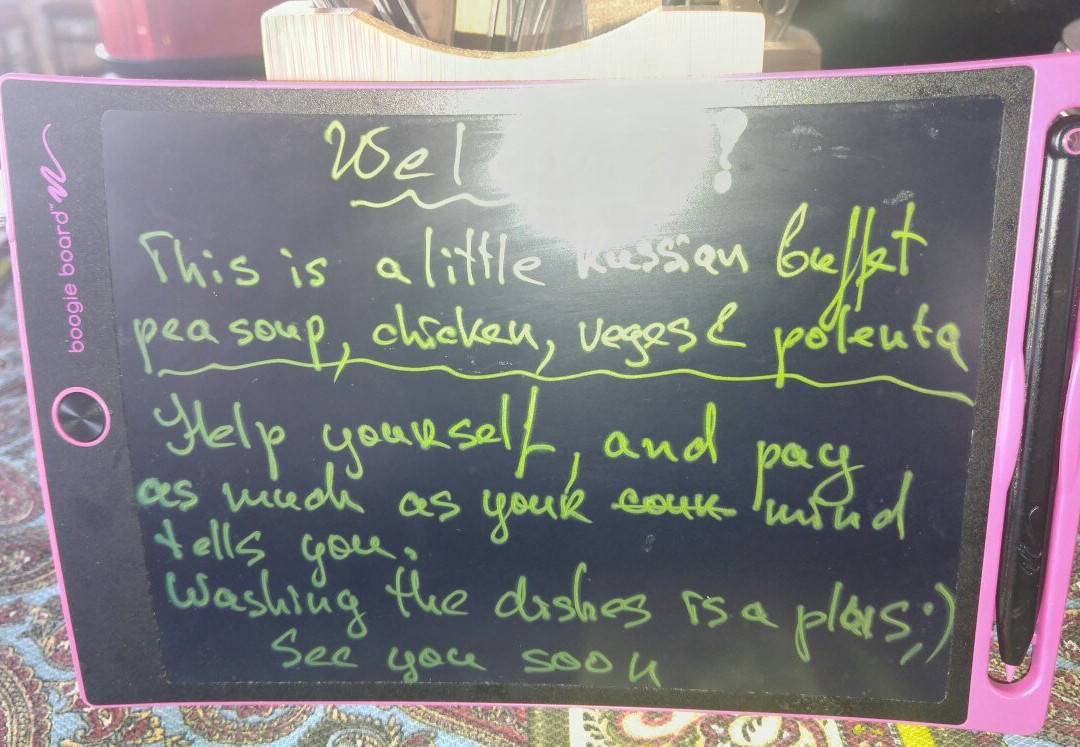 Wel ?
This is a little Russian buffet
pea soup, chicken, veges & polenta
Help yourself, and pay
as much as your ~~soul~~ mind
tells you.
Washing the dishes is a plus;)
See you soon
boogie board™